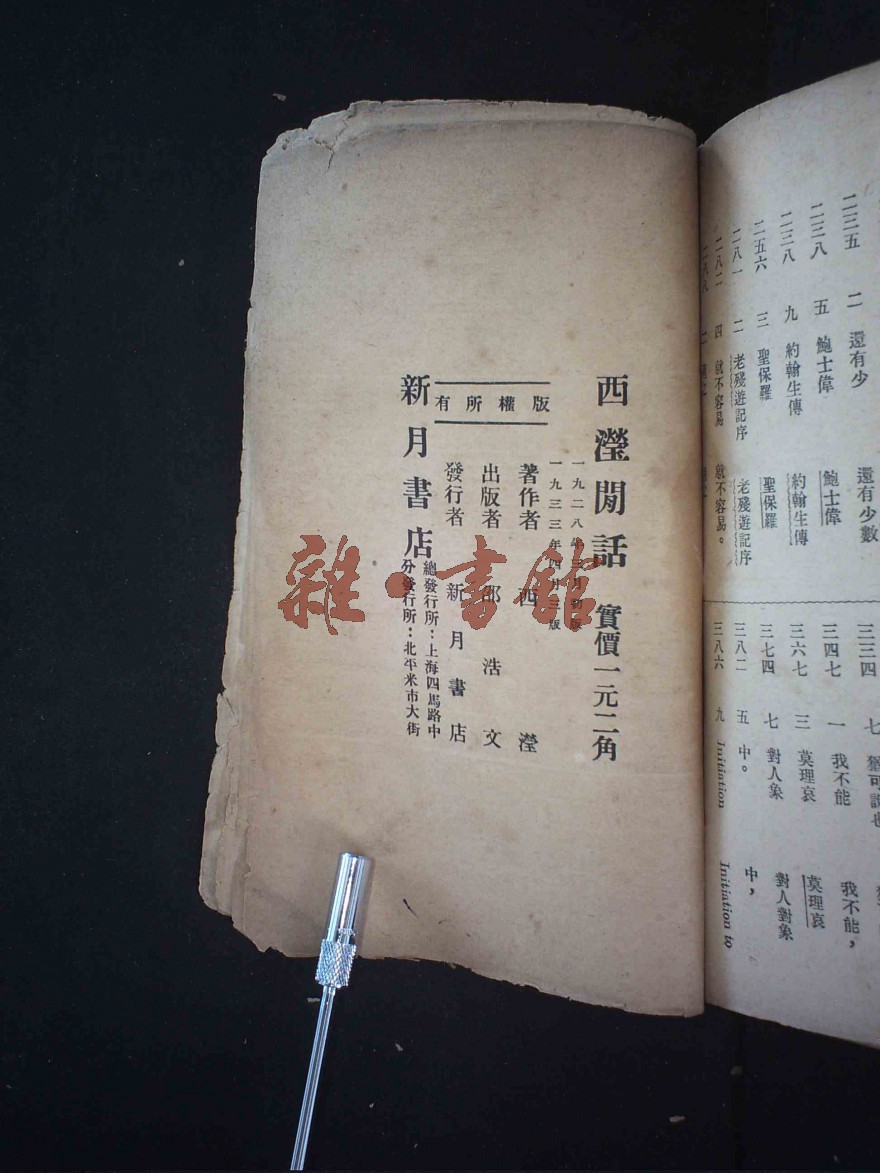 西瀅閒話 實價一元二角
一九二八年三月初版
一九三三年四月三版
版權所有
著作者 西瀅
出版者 邵浩文
發行者 新月書店
新月書店
總發行所：上海四馬路中
分發行所：北平米市大街
雜·書館
二三五 二 還有少 還有少數
二三八 五 鮑士偉 鮑士偉
二三八 九 約翰生傳 約翰生傳
二五六 三 聖保羅 聖保羅
二八一 二 老殘遊記序 老殘遊記序
二八二 四 就不容易 就不容易。
三三四 七 猶可說也
三四七 一 我不能 我不能，
三六七 三 莫理哀 莫理哀
三七四 七 對人象 對人對象
三八二 五 中。 中，
三八六 九 Initiation Initiation to